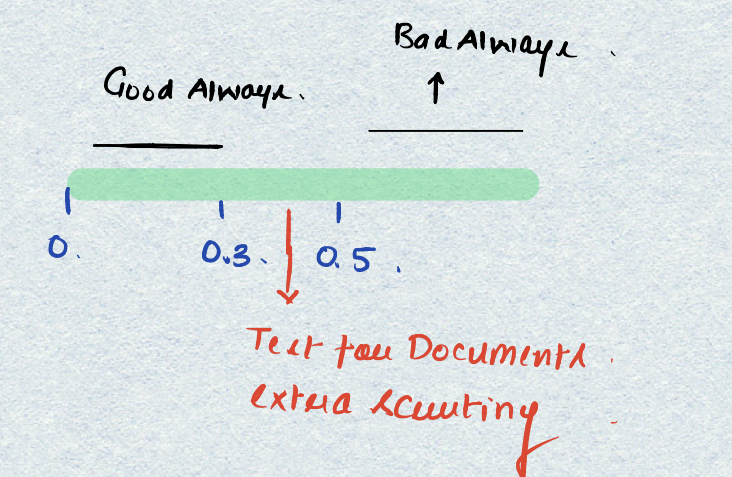 Bad Always.
Good Always.
0. 0.3. 0.5.
Test for Documents.
extra scrutiny